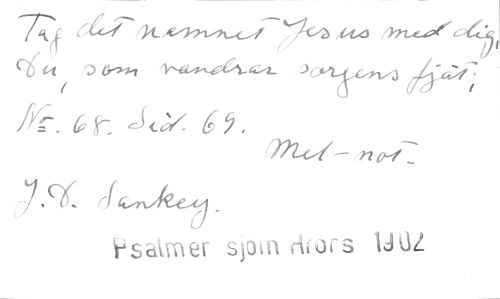 Tag det namnet Jesus med dig,
Du, som vandrar sorgens fjät;
No. 68. Sid. 69.
Mel-not.
J. D. Sankey.
Psalmer sjöin Arors 1902